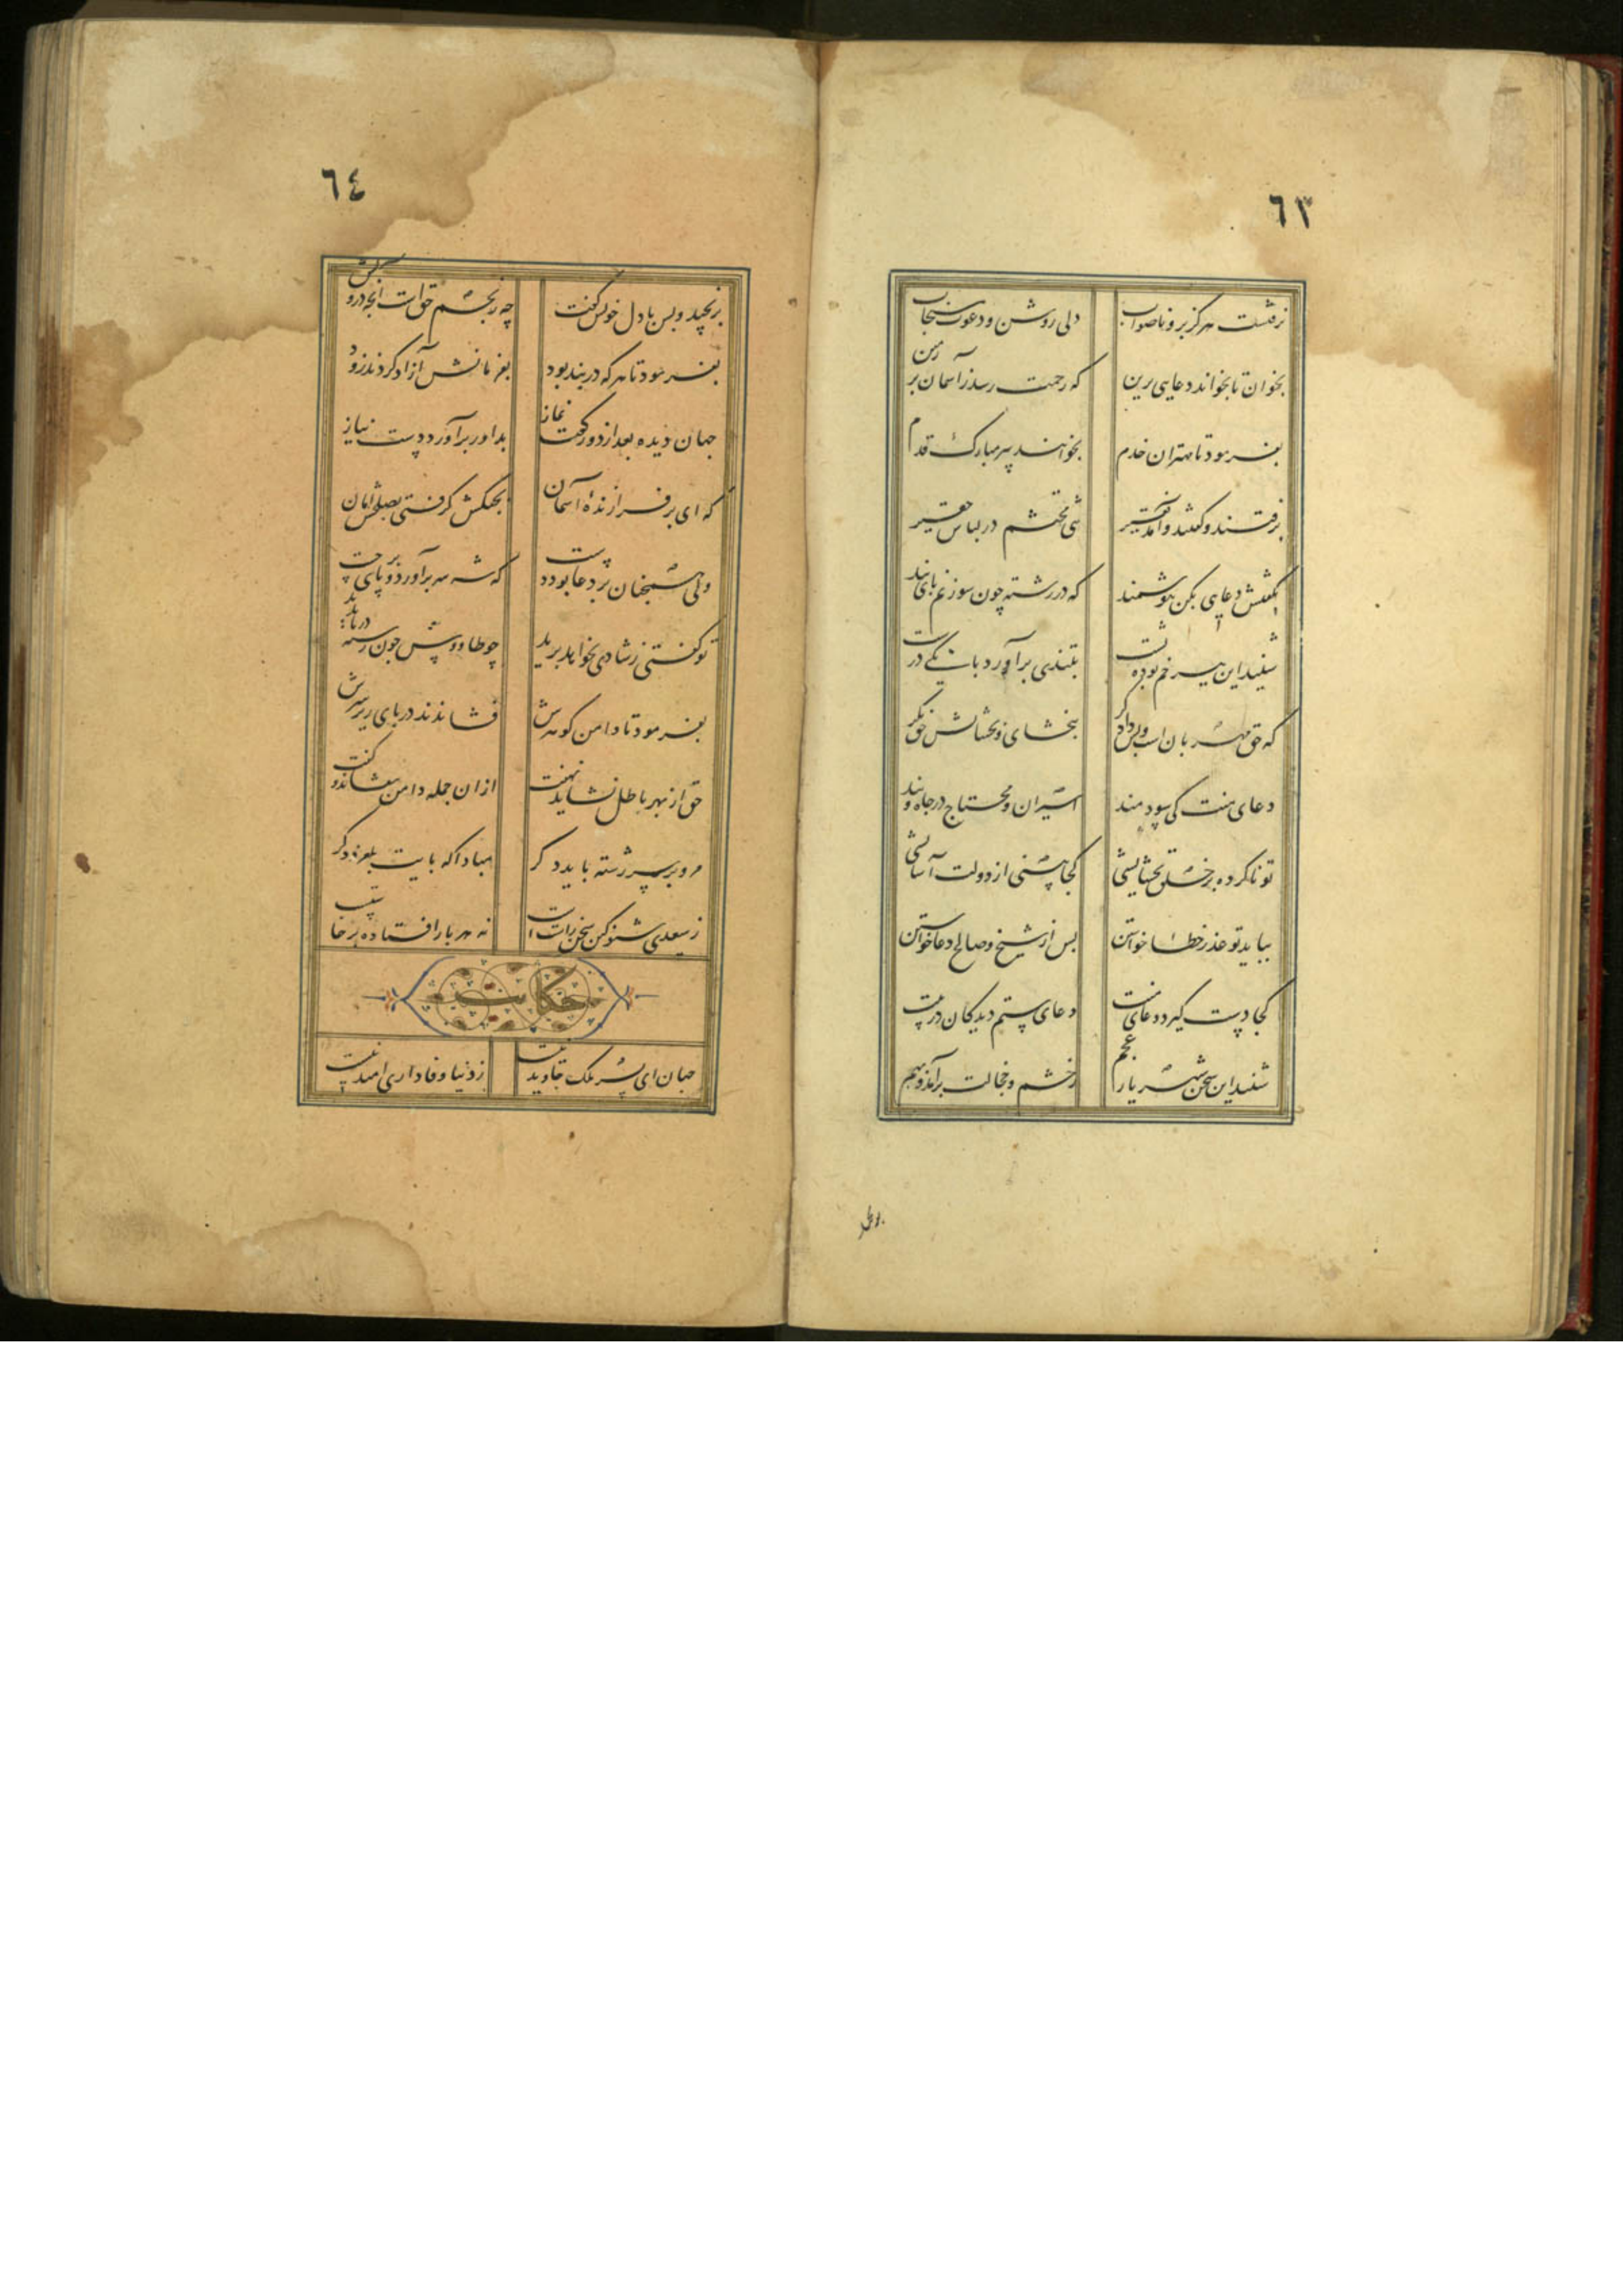 ٦٣
نرفتست هرگز برو ناصواب دلی روشن و دعوت مستجاب
بخوان تا بخواند دعایی برین که رحمت رسد ز آسمان بر زمین
بفرمود تا مهتران خدم بخواندند پیر مبارک قدم
برفتند و گفتند و آمد فقیر تنی محتشم در لباس حقیر
بگفتش دعایی بکن هوشمند که در رشته چون سوزنم پای بند
شنید این سخن پیر خم بوده پشت بتندی برآورد بانگی درشت
که حق مهربانست بر دادگر ببخشای و بخشایش حق نگر
دعای منت کی بود سودمند اسیران محتاج در چاه و بند
تو ناکرده بر خلق بخشایشی کجا بینی از دولت آسایشی
بباید تو عذر خطا خواستن پس از شیخ صالح دعا خواستن
کجا دست گیرد دعای منت دعای ستم دیدگان در پیت
شنید این سخن شهریار عجم ز خشم و خجالت برآمد بهم
برنجید
٦٤
برنجید و پس با دل خویش گفت چه رنجم حقست آنچه درویش گفت
بفرمود تا هر که در بند بود بفرمانش آزاد کردند زود
جهان دیده بعد از دو رکعت نماز بداور برآورد دست نیاز
که ای برفرازنده آسمان بجنگش گرفتی بصلحش امان
ولی همچنان بر دعا بود دست که شه سر برآورد و بر پای جست
تو گفتی ز شادی بخواهد پرید چو طاووس چون رشته در پا ندید
بفرمود تا دامن گوهرش فشاندند در پای زر بر سرش
حق از بهر باطل نشاید نهفت از آن جمله دامن بیفشاند و گفت
مرو بر سر رشته باید دگر مبادا که بایت بلغزد دگر
ز سعدی شنو کین سخن راستست نه هر بار افتاده برخاستست
حکایت
جهان ای پسر ملک جاوید نیست ز دنیا وفاداری امید نیست